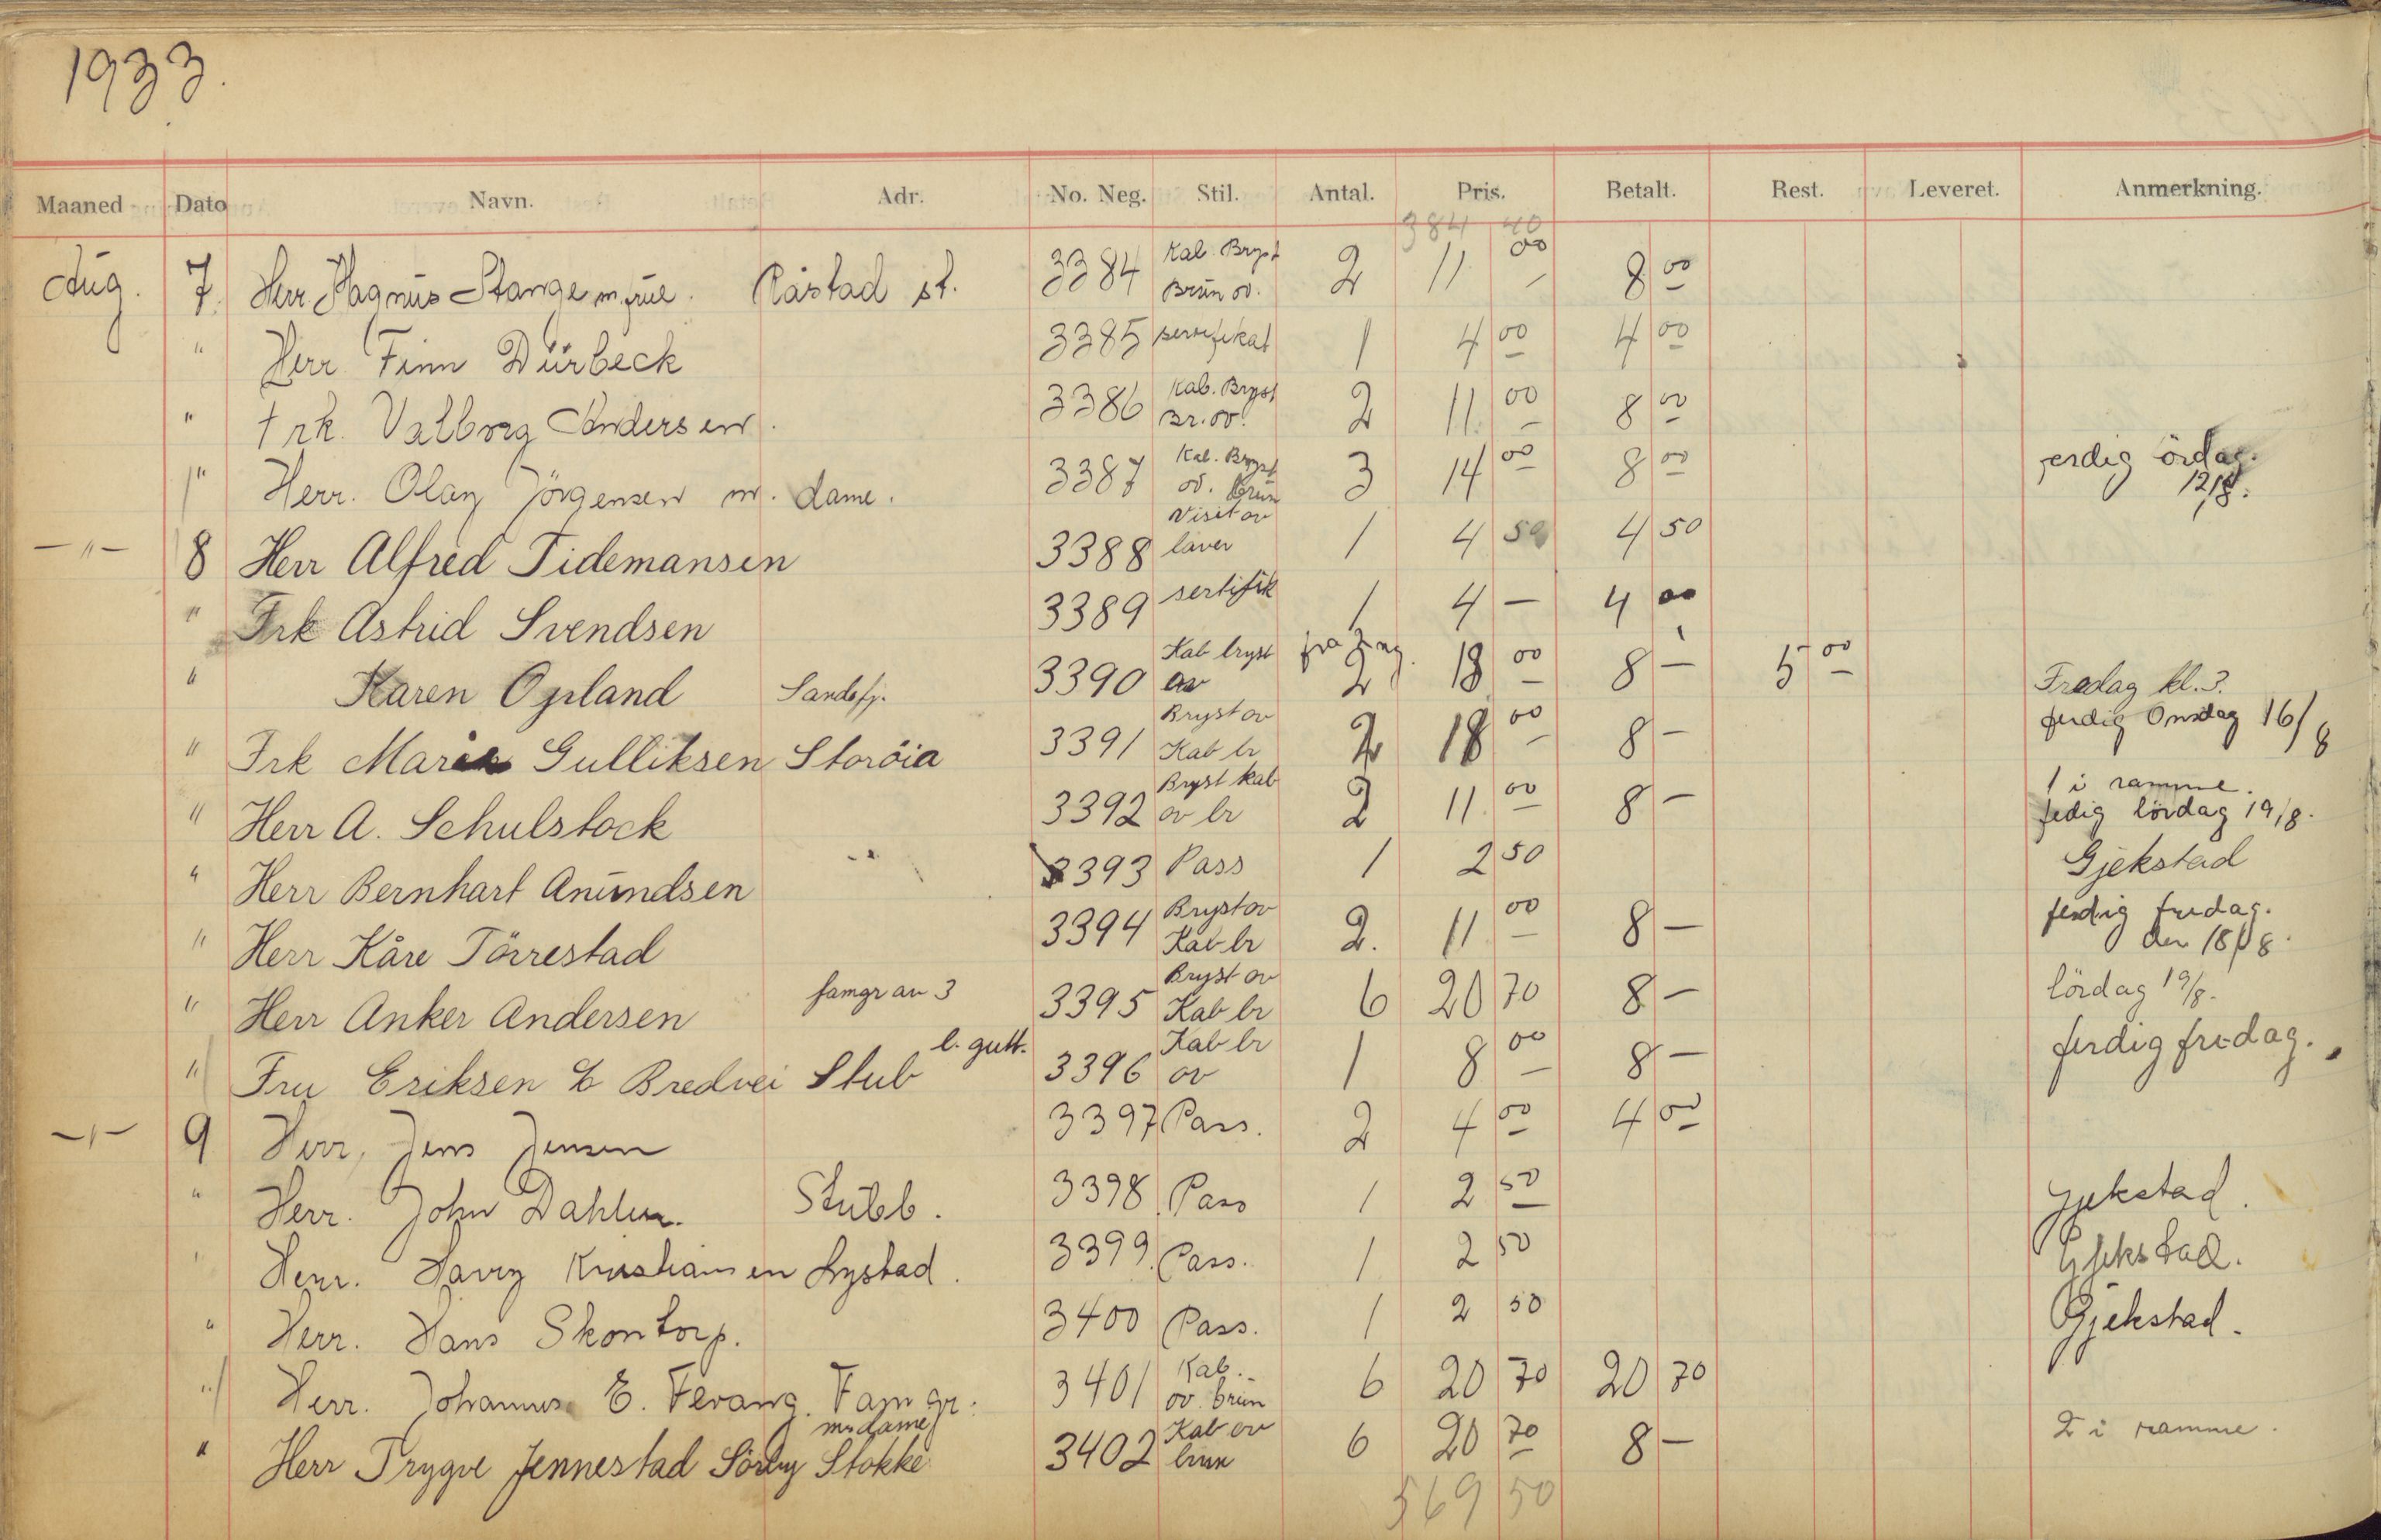 1933.
Maaned Dato Navn. Adr. No. Neg. Stil. Antal. Pris. Betalt. Rest. Leveret. Anmerkning.
384 40
Aug. 7. Herr Magnus Stange m. frue. Råstad st. 3384 Kab. Bryst Brun ov. 2 11 00 8 00
" Herr Finn Dürbeck 3385 sertifikat 1 4 00 4 00
" Frk. Valborg Andersen. 3386 Kab. Bryst Br. ov. 2 11 00 8 00
" Herr. Olav Jörgensen m. dame. 3387 Kab. Bryst ov. brun 3 14 00 8 00 ferdig lördag. 12/8.
—"— 8 Herr Alfred Tidemansen 3388 Visit ov laver 1 4 50 4 50
" Frk Astrid Svendsen 3389 sertifik 1 4 — 4 00
" Karen Opland Sandefj. 3390 Kab bryst ov 2 18 00 8 — 5 00 Fredag kl. 3.
" Frk Marie Gulliksen Storöia 3391 Bryst ov Kab br 2 18 00 8 — ferdig Onsdag 16/8
" Herr A. Schulstock 3392 Bryst kab ov br 2 11 00 8 — 1 i ramme. fedig lördag 19/8.
" Herr Bernhart Anundsen 3393 Pass 1 2 50 Gjekstad
" Herr Kåre Törrestad 3394 Bryst ov Kab br 2. 11 00 8 — ferdig fredag. den 18/8.
" Herr Anker Andersen famgr av 3 3395 Bryst ov Kab br 6 20 70 8 — lördag 19/8.
" Fru Eriksen % Bredvei Stub l. gutt. 3396 Kab br ov 1 8 00 8 — ferdig fredag.
—"— 9 Herr, Jens Jensen 3397 Pass. 2 4 00 4 00
" Herr. John Dahlen. Stubb. 3398 Pass 1 2 50 Gjekstad.
" Herr. Harry Kristiansen Lystad. 3399. Pass. 1 2 50 Gjekstad.
" Herr. Hans Skontorp. 3400 Pass. 1 2 50 Gjekstad.
" Herr. Johannes E. Fevang. Fam gr. 3401 Kab. ov. brun 6 20 70 20 70
" Herr Trygve Jennestad Sörby Stokke m. dame 3402 Kab ov brun 6 20 70 8 — 2 i ramme.
569 50